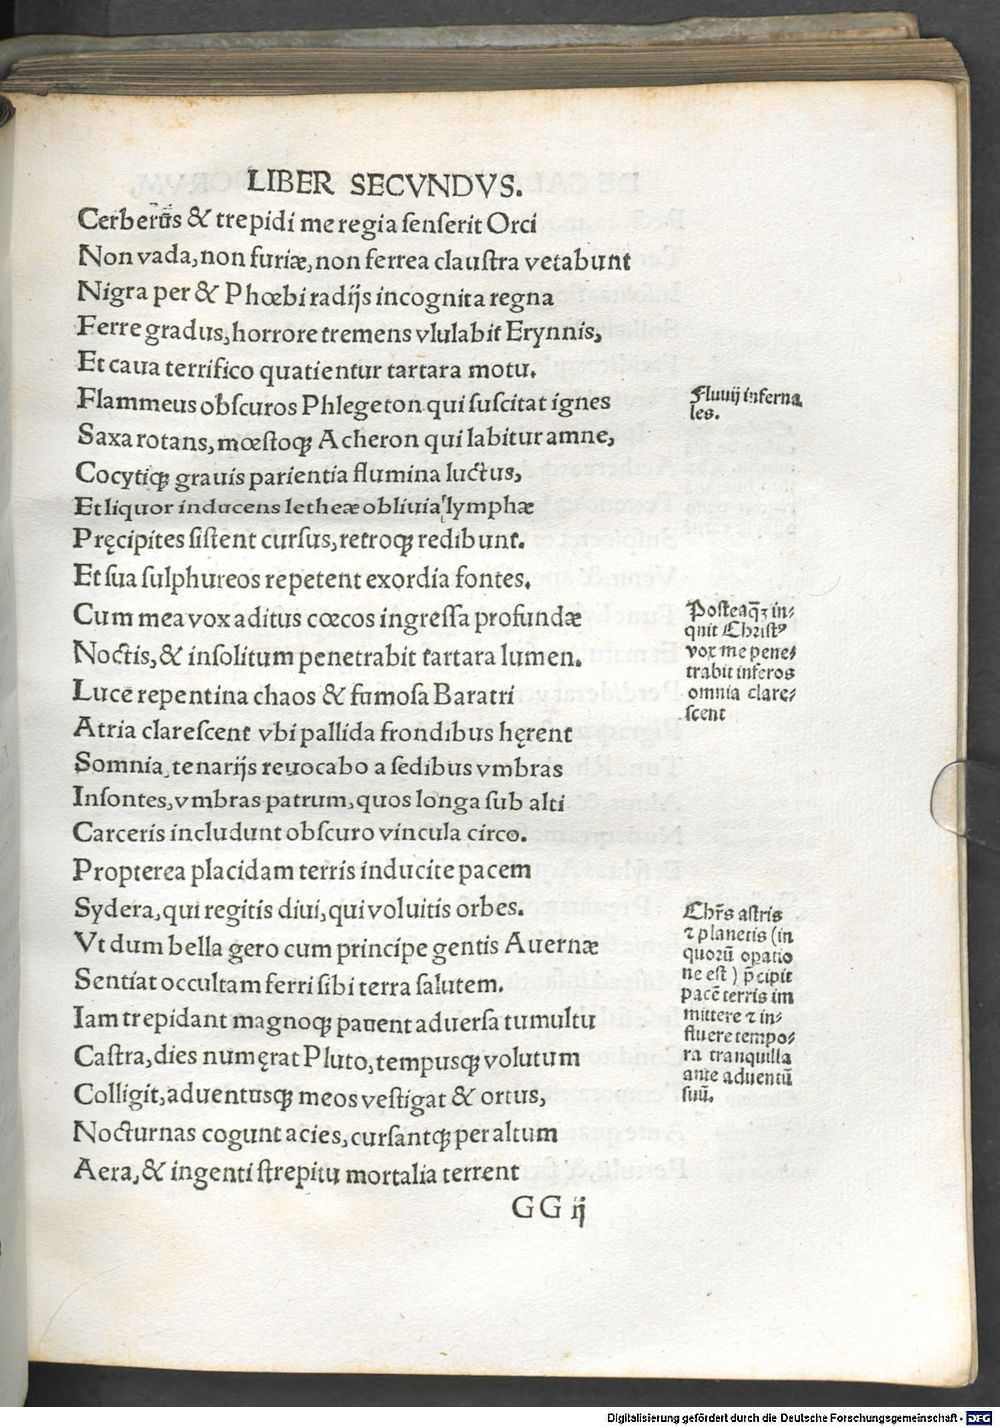 LIBER SECVNDVS.
Cerberus & trepidi me regia senserit Orci
Non vada, non furiæ, non ferrea claustra vetabunt
Nigra per & Phœbi radijs incognita regna
Ferre gradus, horrore tremens vlulabit Erynnis,
Et caua terrifico quatientur tartara motu.
Flammeus obscuros Phlegeton qui suscitat ignes
Saxa rotans, mœstoqꝫ Acheron qui labitur amne,
Cocytiqꝫ grauis parientia flumina luctus,
Et liquor inducens letheæ obliuia lymphæ
Pręcipites sistent cursus, retroqꝫ redibunt.
Et sua sulphureos repetent exordia fontes.
Cum mea vox aditus cœcos ingressa profundæ
Noctis, & insolitum penetrabit tartara lumen.
Luce repentina chaos & fumosa Baratri
Atria clarescent vbi pallida frondibus hęrent
Somnia, tenarijs reuocabo a sedibus vmbras
Insontes, vmbras patrum, quos longa sub alti
Carceris includunt obscuro vincula circo.
Propterea placidam terris inducite pacem
Sydera, qui regitis diui, qui voluitis orbes.
Vt dum bella gero cum principe gentis Auernæ
Sentiat occultam ferri sibi terra salutem.
Iam trepidant magnoqꝫ pauent aduersa tumultu
Castra, dies numęrat Pluto, tempusqꝫ volutum
Colligit, aduentusqꝫ meos vestigat & ortus,
Nocturnas cogunt acies, cursantqꝫ per altum
Aera, & ingenti strepitu mortalia terrent
GG ij
Fluuij inferna
les.
Posteaq̃ꝫ in⸗
quit Christꝰ
vox me pene⸗
trabit inferos
omnia clare⸗
scent
Chr̃s astris
⁊ planetis (in
quorũ opatio
ne est) p̃cipit
pacẽ terris im
mittere ⁊ in⸗
fluere tempo⸗
ra tranquilla
ante aduentũ
suũ.
Digitalisierung gefördert durch die Deutsche Forschungsgemeinschaft - DFG